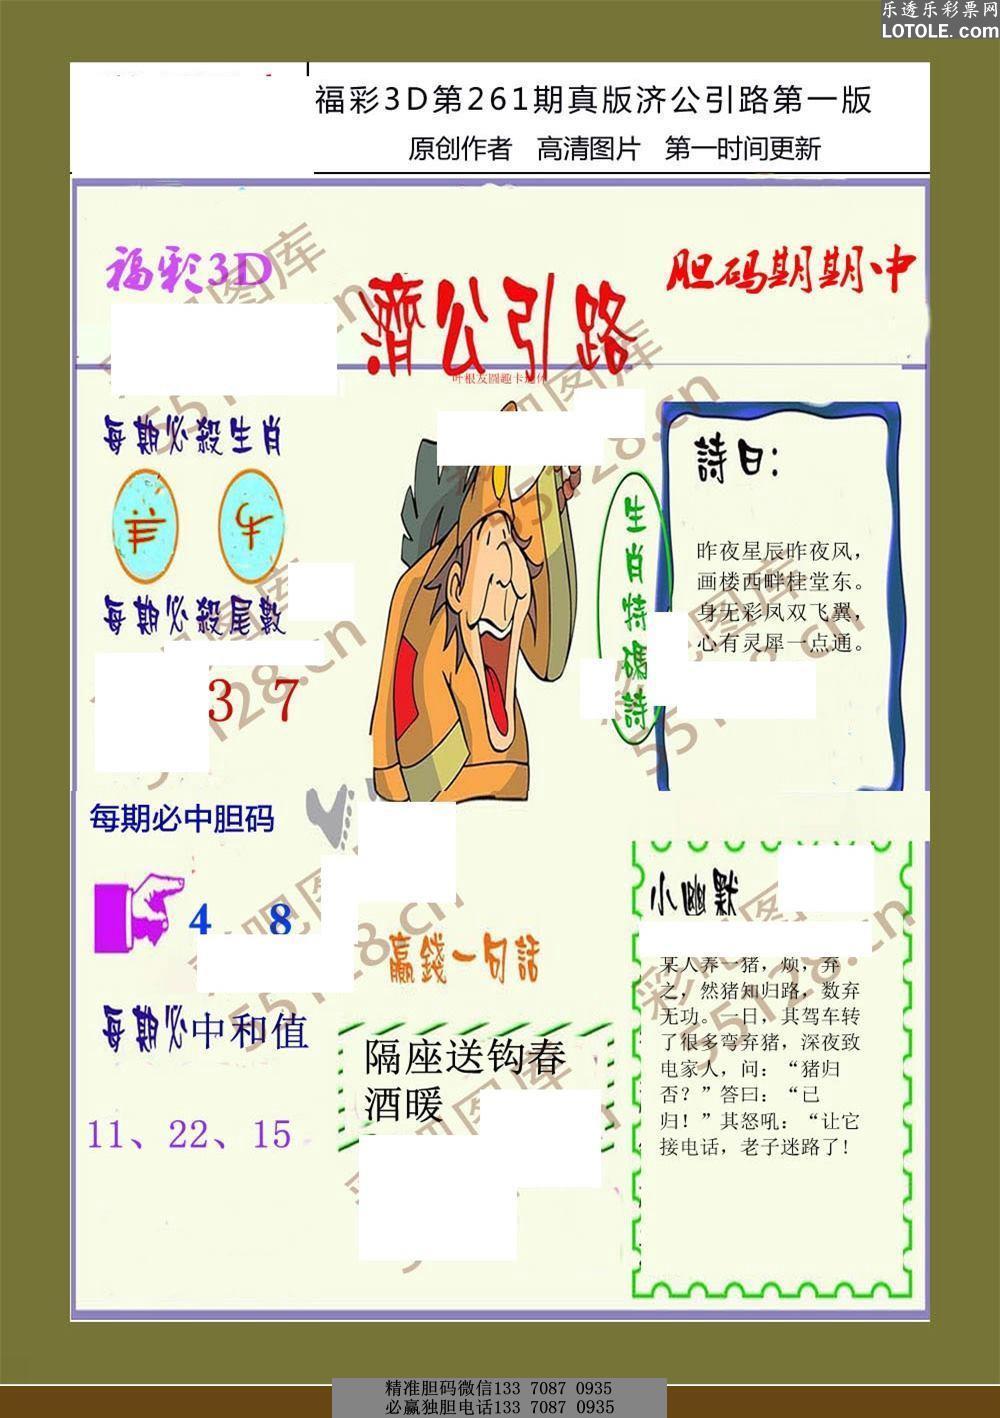 乐透乐彩票网
LOTOLE.com
福彩3D第261期真版济公引路第一版
原创作者 高清图片 第一时间更新
福彩3D
濟公引路
胆码期期中
叶根友圆趣卡通体
每期必殺生肖
羊 牛
每期必殺尾數
3 7
生肖特碼詩
詩曰：
昨夜星辰昨夜风，
画楼西畔桂堂东。
身无彩凤双飞翼，
心有灵犀一点通。
每期必中胆码
4 8
每期必中和值
11、22、15
贏錢一句話
隔座送钩春
酒暖
小幽默
某人养一猪，烦，弃
之，然猪知归路，数弃
无功。一日，其驾车转
了很多弯弃猪，深夜致
电家人，问：“猪归
否？”答曰：“已
归！”其怒吼：“让它
接电话，老子迷路了!
彩吧图库
55128.cn
精准胆码微信133 7087 0935
必赢独胆电话133 7087 0935